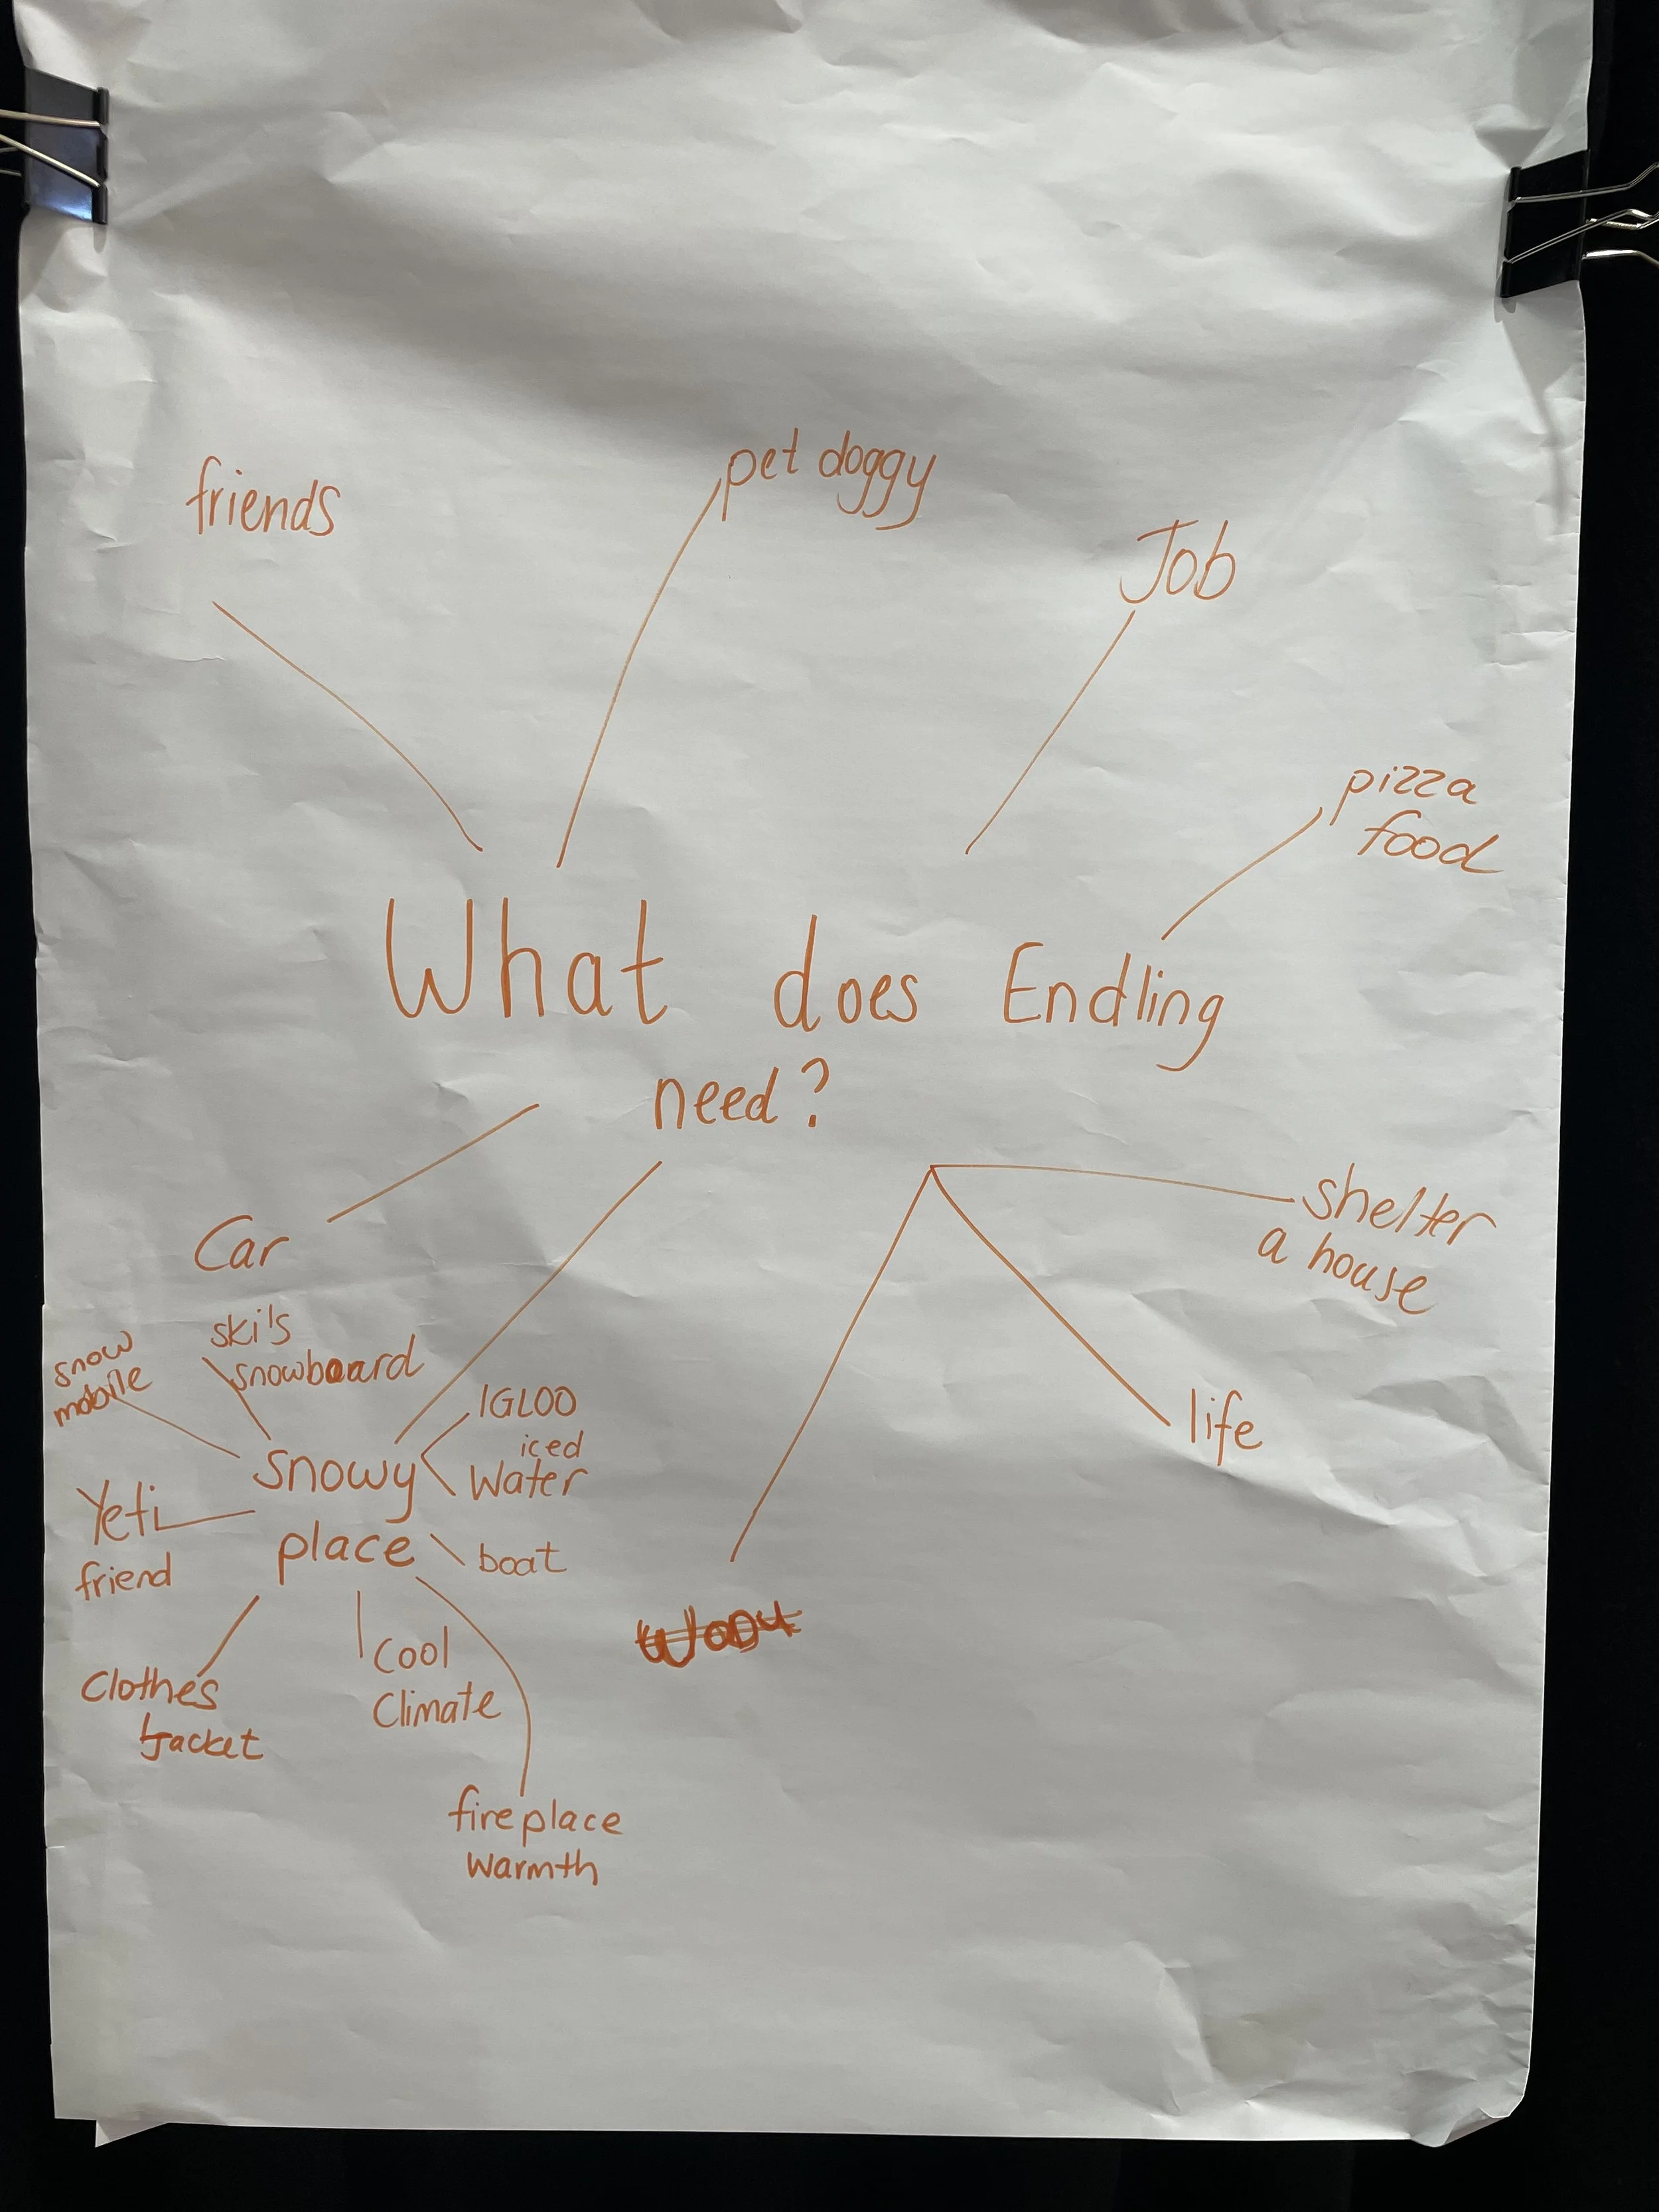 friends
pet doggy
Job
pizza
food
What does Endling
need?
Car
shelter
a house
ski's
snowboard
snow
mobile
IGLOO
iced
Water
snowy
place
Yeti
friend
boat
life
Clothes
Jacket
Cool
Climate
fireplace
warmth